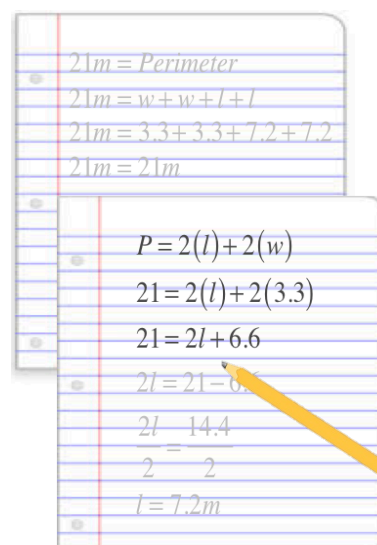 21m = Perimeter
21m = w + w + l + l
21m = 3.3 + 3.3 + 7.2 + 7.2
21m = 21m
P = 2(l) + 2(w)
21 = 2(l) + 2(3.3)
21 = 2l + 6.6
2l = 21 − 6.6
2l/2 = 14.4/2
l = 7.2m